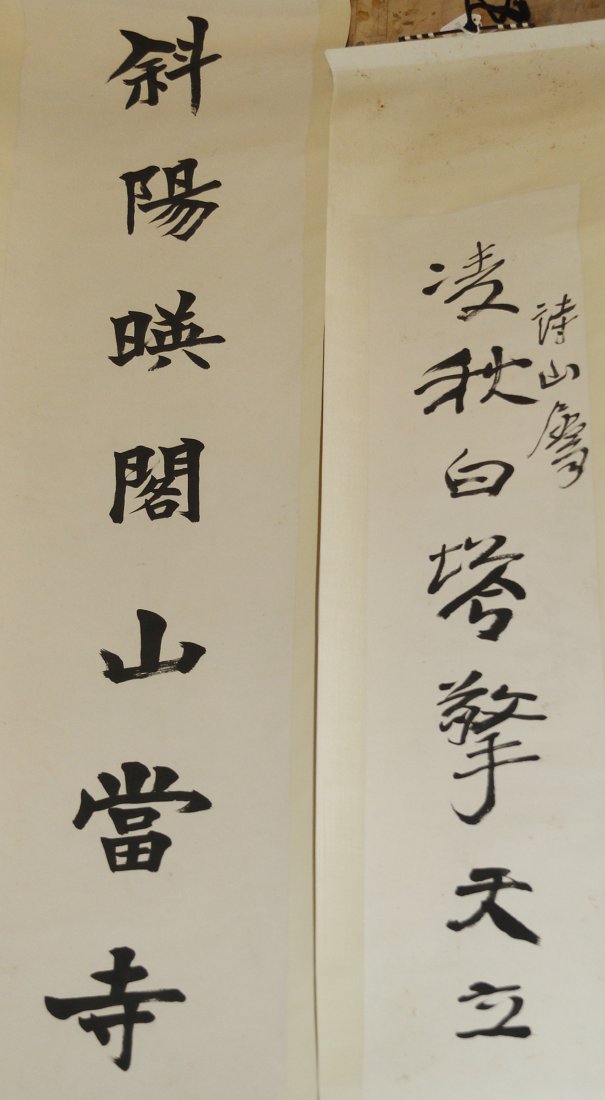 詩山
凌秋白塔擎天立
斜陽暎閣山當寺